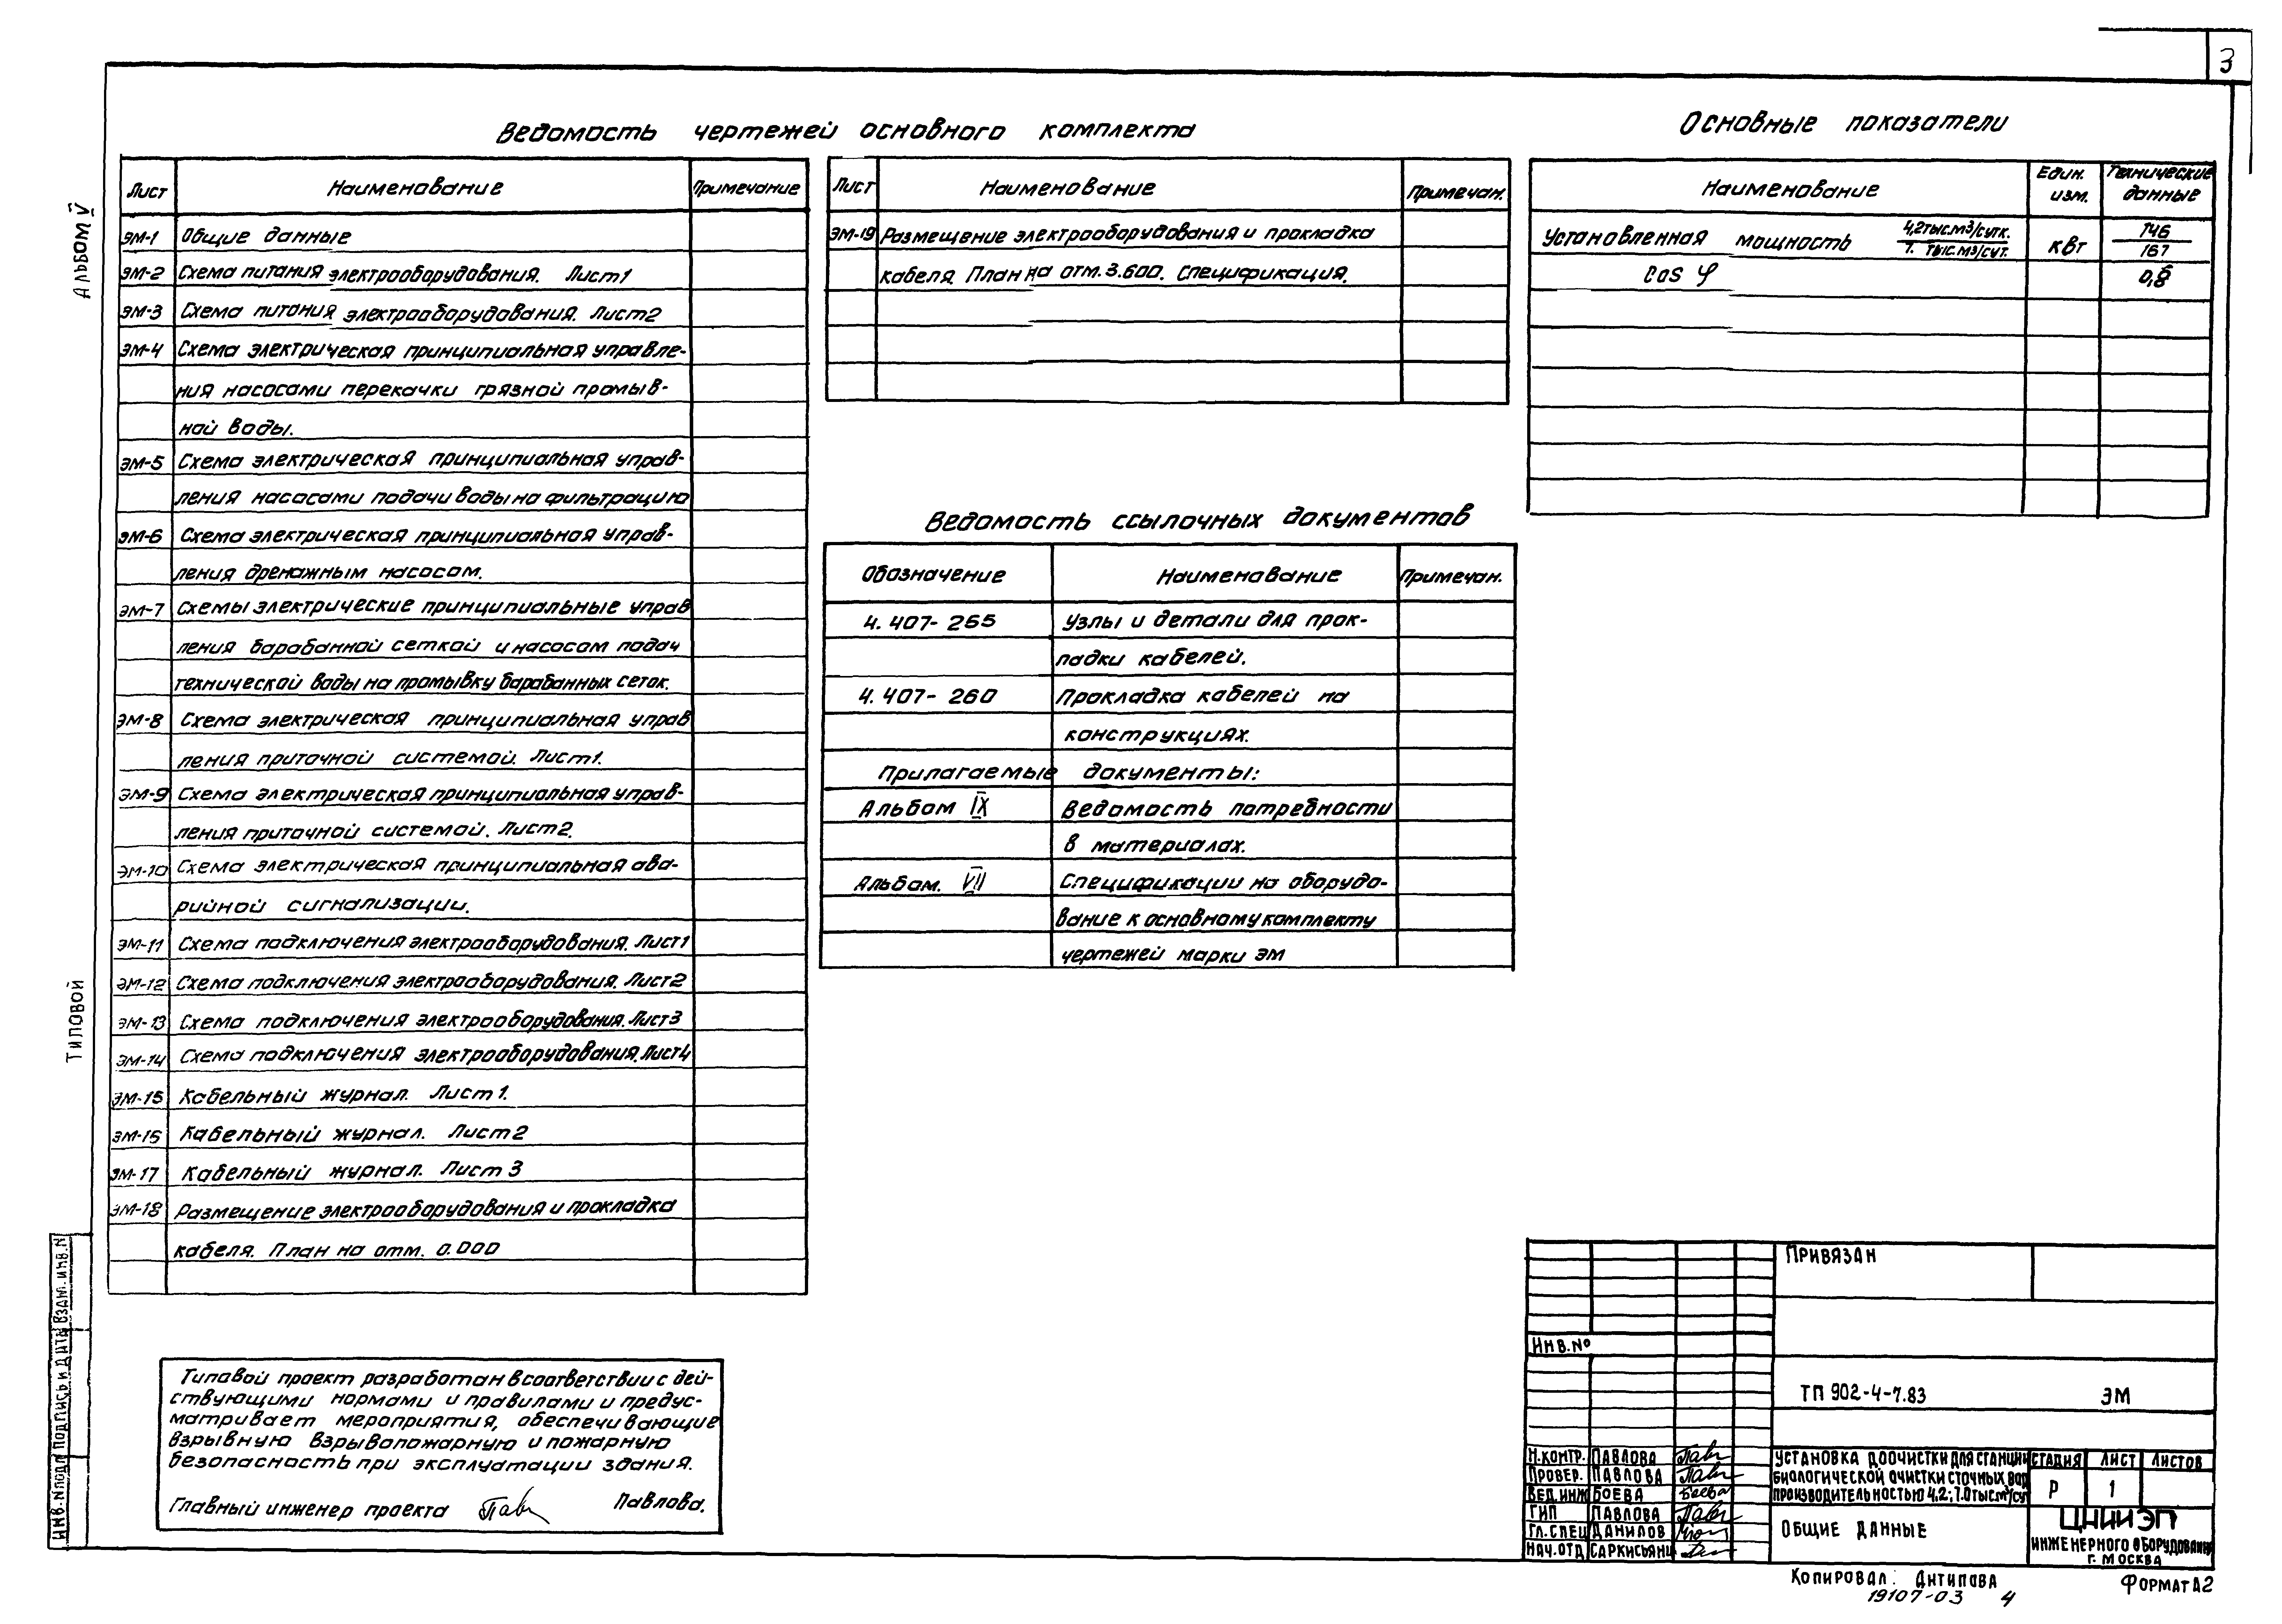 3
Альбом V
Типовой
Ведомость чертежей основного комплекта
Лист Наименование Примечание
ЭМ-1 Общие данные
ЭМ-2 Схема питания электрооборудования. Лист 1
ЭМ-3 Схема питания электрооборудования. Лист 2
ЭМ-4 Схема электрическая принципиальная управле-
ния насосами перекачки грязной промыв-
ной воды.
ЭМ-5 Схема электрическая принципиальная управ-
ления насосами подачи воды на фильтрацию
ЭМ-6 Схема электрическая принципиальная управ-
ления дренажным насосом.
ЭМ-7 Схемы электрические принципиальные управ
ления барабанной сеткой и насосом подач
технической воды на промывку барабанных сеток.
ЭМ-8 Схема электрическая принципиальная управ
ления приточной системой. Лист 1.
ЭМ-9 Схема электрическая принципиальная управ-
ления приточной системой. Лист 2.
ЭМ-10 Схема электрическая принципиальная ава-
рийной сигнализации.
ЭМ-11 Схема подключения электрооборудования. Лист 1
ЭМ-12 Схема подключения электрооборудования. Лист 2
ЭМ-13 Схема подключения электрооборудования. Лист 3
ЭМ-14 Схема подключения электрооборудования. Лист 4
ЭМ-15 Кабельный журнал. Лист 1.
ЭМ-16 Кабельный журнал. Лист 2
ЭМ-17 Кабельный журнал. Лист 3
ЭМ-18 Размещение электрооборудования и прокладка
кабеля. План на отм. 0.000
Лист Наименование Примечан.
ЭМ-19 Размещение электрооборудования и прокладка
кабеля. План на отм. 3.600. Спецификация.
Основные показатели
Наименование Един. изм. Технические данные
Установленная мощность 4,2 тыс.м3/сутк. кВт 146
7. тыс.м3/сут. 167
Cos φ 0,8
Ведомость ссылочных документов
Обозначение Наименование Примечан.
4.407-265 Узлы и детали для прок-
ладки кабелей.
4.407-260 Прокладка кабелей на
конструкциях.
Прилагаемые документы:
Альбом IX Ведомость потребности
в материалах.
Альбом. VII Спецификации на оборудо-
вание к основному комплекту
чертежей марки ЭМ
Типовой проект разработан в соответствии с дей-
ствующими нормами и правилами и предус-
матривает мероприятия, обеспечивающие
взрывную взрывопожарную и пожарную
безопасность при эксплуатации здания.
Главный инженер проекта Павлова.
Инв.Nподл Подпись и дата Взам.инв.N
Привязан
Инв.№
ТП 902-4-7.83 ЭМ
Н.контр. Павлова
Провер. Павлова
Вед.инж Боева Боева
ГИП Павлова
Гл.спец Данилов
Нач.отд Саркисьянц
Установка доочистки для станции
биологической очистки сточных вод
производительностью 4,2; 7.0 тыс.м³/сут
Стадия Лист Листов
Р 1
Общие данные
ЦНИИЭП
инженерного оборудования
г. Москва
Копировал: Антипова
Формат А2
19107-03 4